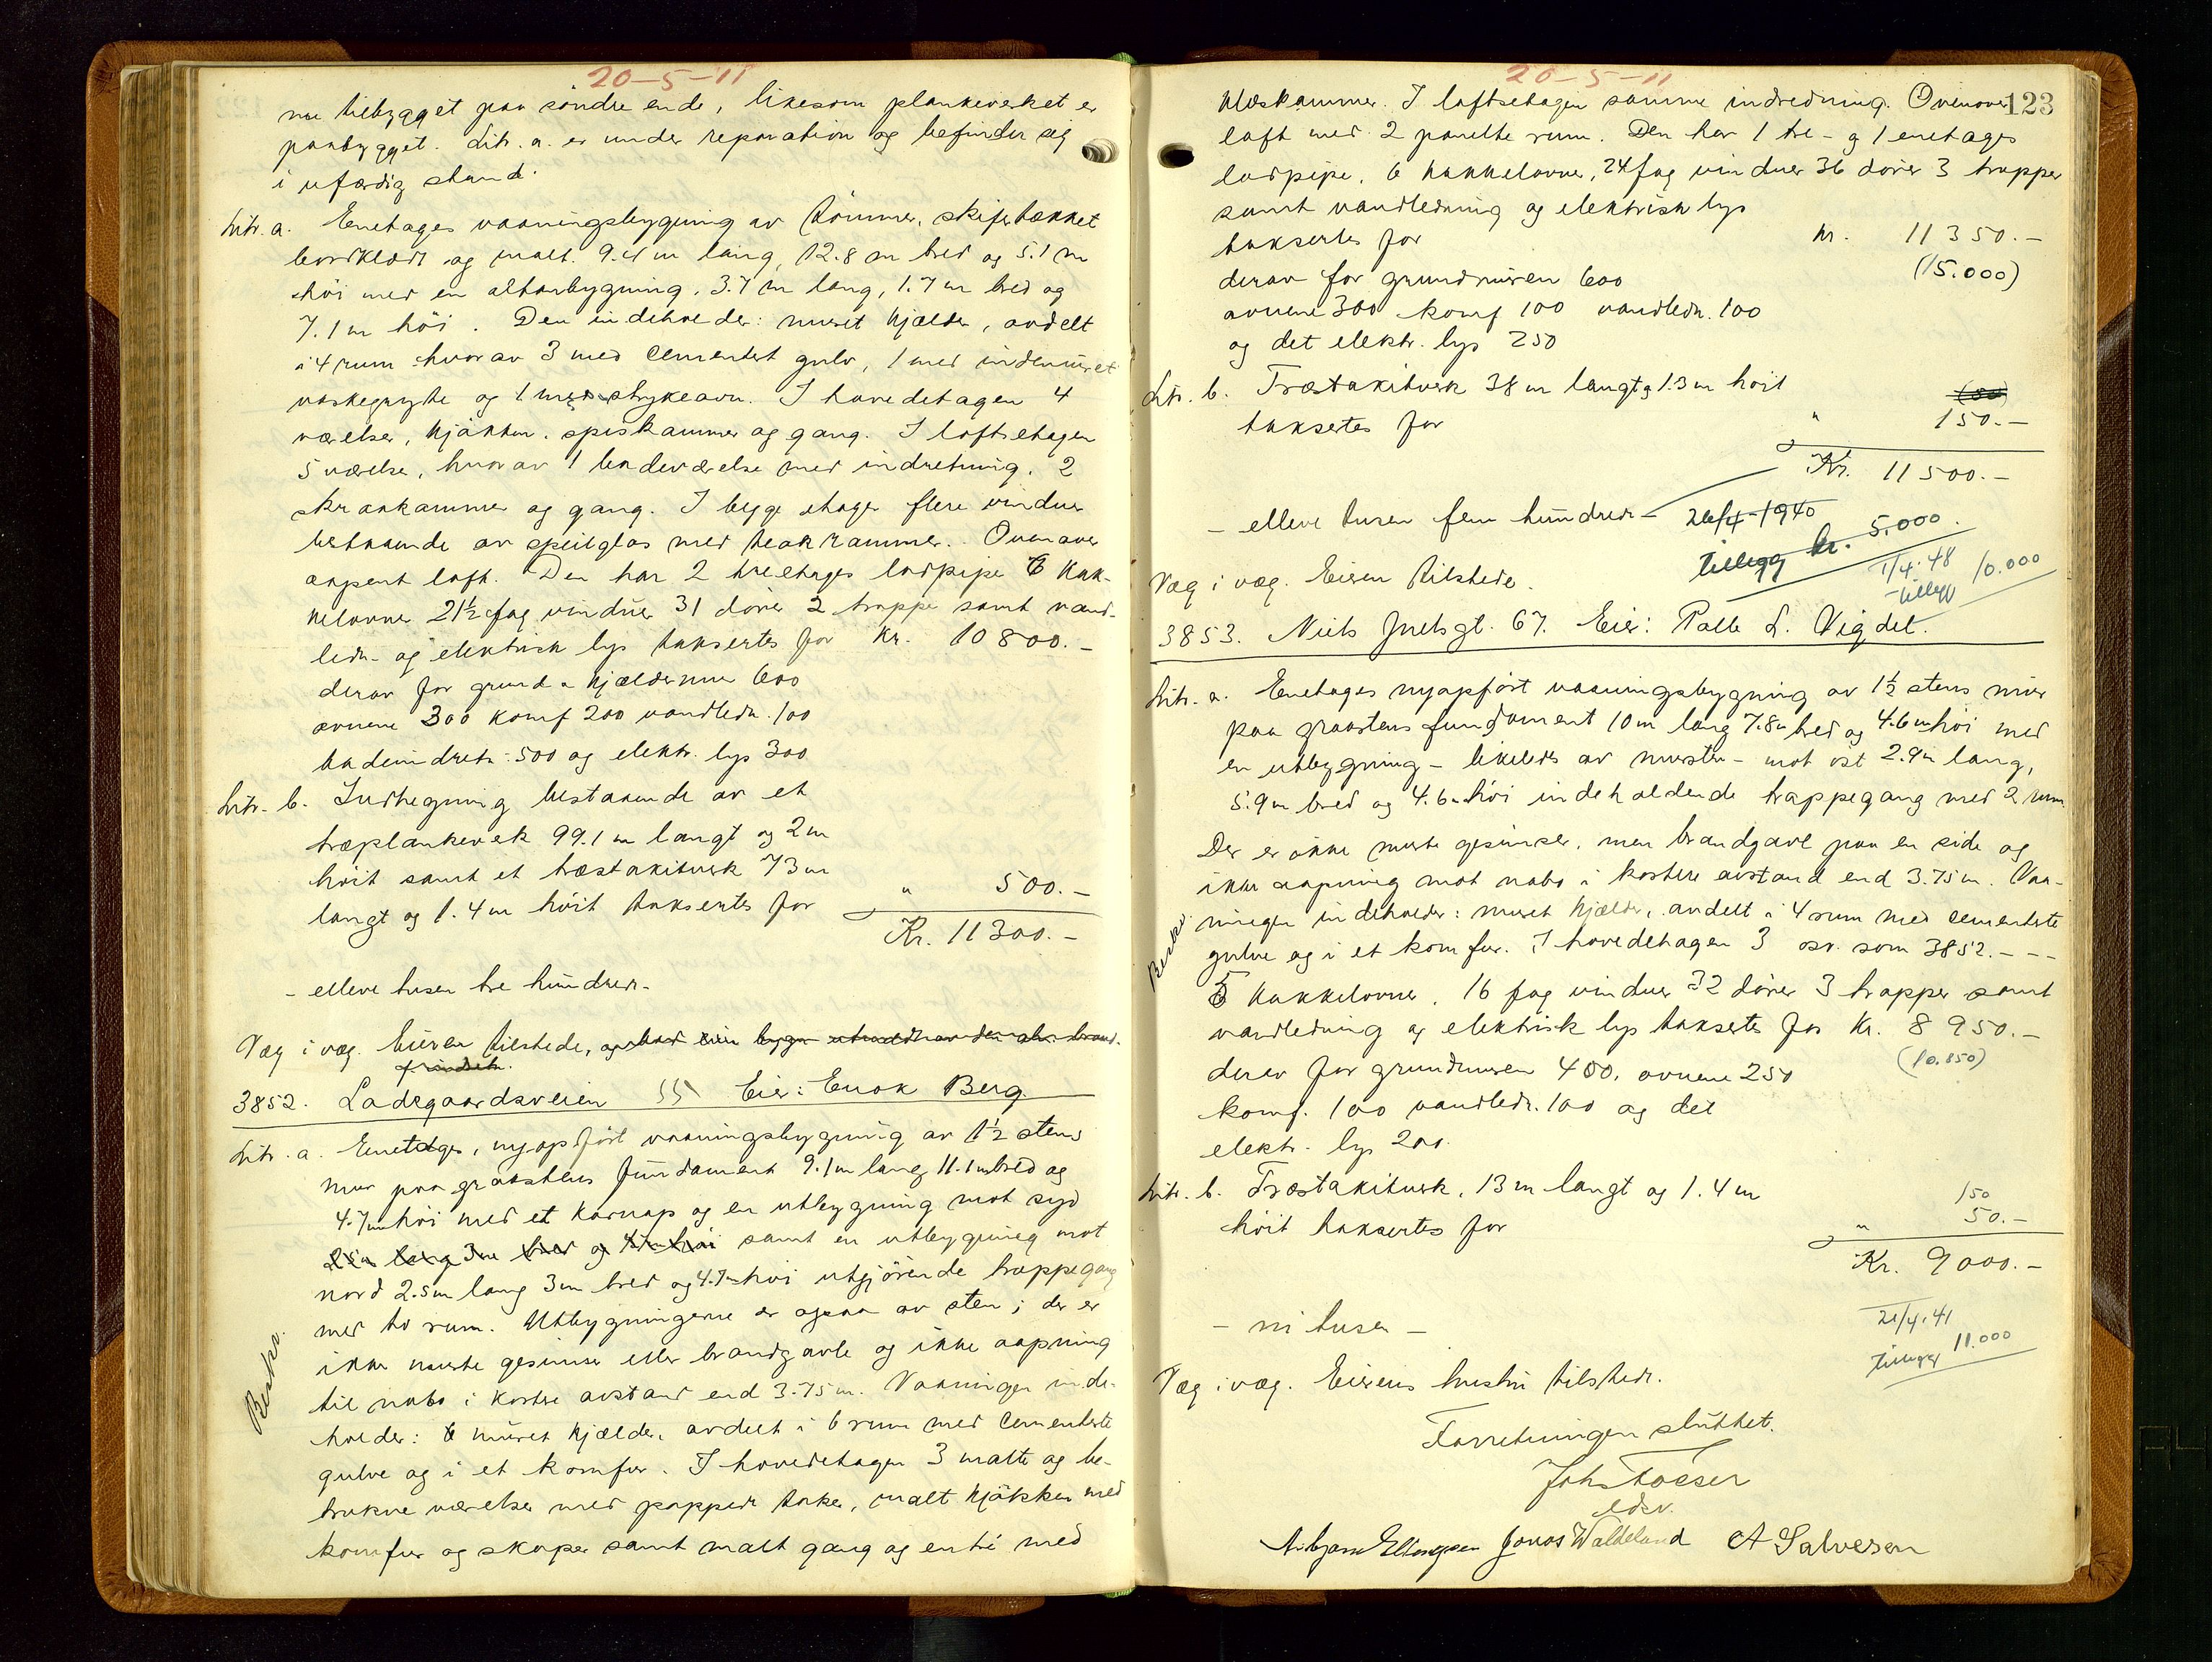 20-5-11
nu tilbygget paa söndre ende, likesom plankeverket er
paabygget. Litr. a. er under reparation og befinder sig
i ufærdig stand.
Litr. a. Enetages vaaningsbygning av tömmer, skifertækket
bordklædt og malt. 9.4 m lang, 12.8 m bred og 5.1 m
höi med en altanbygning, 3.7 m lang, 1.7 m bred og
7.1 m höi. Den indeholder: muret kjælder, avdelt
i 4 rum hvorav 3 med cementert gulv, 1 med indemuret
vaskegryte og 1 med strykeovn. I hovedetagen 4
værelser, kjökken, spiskammer og gang. I loftsetagen
5 værelse, hvorav 1 badeværelse med indretning, 2
skraakammer og gang. I begge etager flere vinduer
bestaaende av speilglas med teakrammer. Ovenover
aapent loft. Den har 2 treetages lodpipe 6 kak-
kelovner 21½ fag vinduer 31 dörer 2 trapper samt vand-
ledn- og elektrisk lys taksertes for Kr. 10800.-
derav for grund- kjældermur 600
ovnene 300 komf 200 vandledn. 100
badeindretn. 500 og elektr. lys 300
Litr. b. Indhegning bestaaende av et
træplankeverk 99.1 m langt og 2 m
höit samt et træstakitverk 73 m
langt og 1.4 m höit taksertes for " 500.-
Kr. 11300.-
- elleve tusen tre hundrede -
Væg i væg. Eieren tilstede,
3852. Ladegaardsveien 55 Eier: Enok Berg.
Litr. a. Enetages, nyopfört vaaningsbygning av 1½ stens
mur paa graastens fundament 9.1 m lang 11.1 m bred og
4.7 m höi med et karnap og en utbygning mot syd
2.5 m lang 3 m bred og 4.7 m höi samt en utbygning mot
nord 2.5 m lang 3 m bred og 4.7 m höi utgjörende trappegang
med to rum. Utbygningerne er ogsaa av sten; der er
ikke murte gesimse eller brandgavle og ikke aapning
til nabo i kortere avstand end 3.75 m. Vaaningen inde-
Beskr.
holder: muret kjælder, avdelt i 6 rum med cementerte
gulve og i et komfur. I hovedetagen 3 malte og be-
trukne værelser med pappede taker, malt kjökken med
komfur og skaper samt malt gang og entré med
20-5-11
123
klæskammer. I loftsetagen samme indredning. Ovenover
loft med 2 panelte rum. Den har 1 tre- og 1 enetages
lodpipe, 6 kakkelovner, 24 fag vinduer 36 dörer 3 trapper
samt vandledning og elektrisk lys
taksertes for Kr. 11350.-
derav for grundmuren 600 (15.000)
ovnene 300 komf 100 vandledn. 100
og det elektr. lys 250
Litr. b. Træstakitverk 38 m langt og 1.3 m höit
taksertes for " 150.-
Kr. 11500.-
- elleve tusen fem hundrede - 26/4-1940
tillegg kr. 5.000.
Væg i væg. Eieren tilstede. 1/4.48 tillegg 10.000
3853. Niels Juelsgt. 67. Eier: Palle L. Vigdel.
Litr. a. Enetages nyopfört vaaningsbygning av 1½ stens mur
paa graastens fundament 10 m lang 7.8 m bred og 4.6 m höi med
en utbygning - likeledes av mursten - mot öst 2.9 m lang,
5.9 m bred og 4.6 m höi indeholdende trappegang med 2 rum.
Der er ikke murte gesimser, men brandgavl paa en side og
ikke aapning mot nabo i kortere avstand end 3.75 m. Vaa-
Beskr.
ningen indeholder: muret kjælder, avdelt i 4 rum med cementerte
gulve og i et komfur. I hovedetagen 3 osv. som 3852. - - -
5 kakkelovner, 16 fag vinduer 32 dörer 3 trapper samt
vandledning og elektrisk lys taksertes for Kr. 8950.-
derav for grundmuren 400, ovnene 250 (10.850)
komf. 100 vandledn. 100 og det
elektr. lys 200.
Litr. b. Træstakitverk, 13 m langt og 1.4 m
höit taksertes for " 150 50.-
Kr. 9000.-
- ni tusen -
21/4.41
tillegg 11.000
Væg i væg. Eierens hustru tilstede.
Forretningen sluttet.
Joh Racser
edsv.
Arbjørn Ellingsen Jonas Waldeland A Salvesen